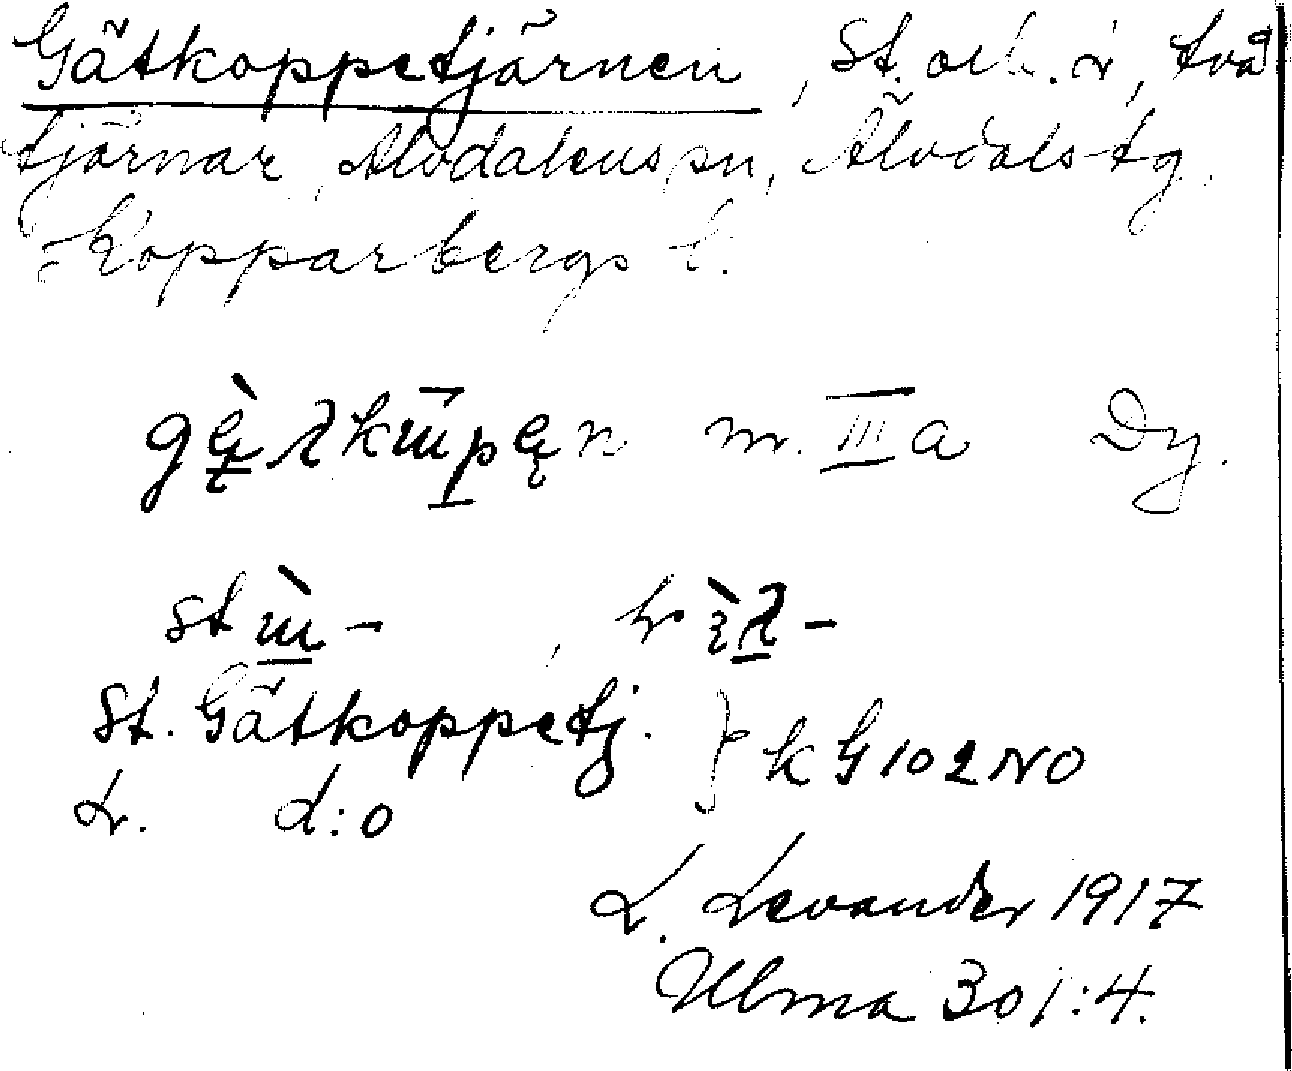 Gätkoppetjärnen, St. och L., två
tjärnar, Älvdalens sn, Älvdals tg
Kopparbergs l.
m. III a Dy.
St. Gätkoppetj. } k G 102 NO
L. d:o
L. Levander 1917
Ulma 301:4.